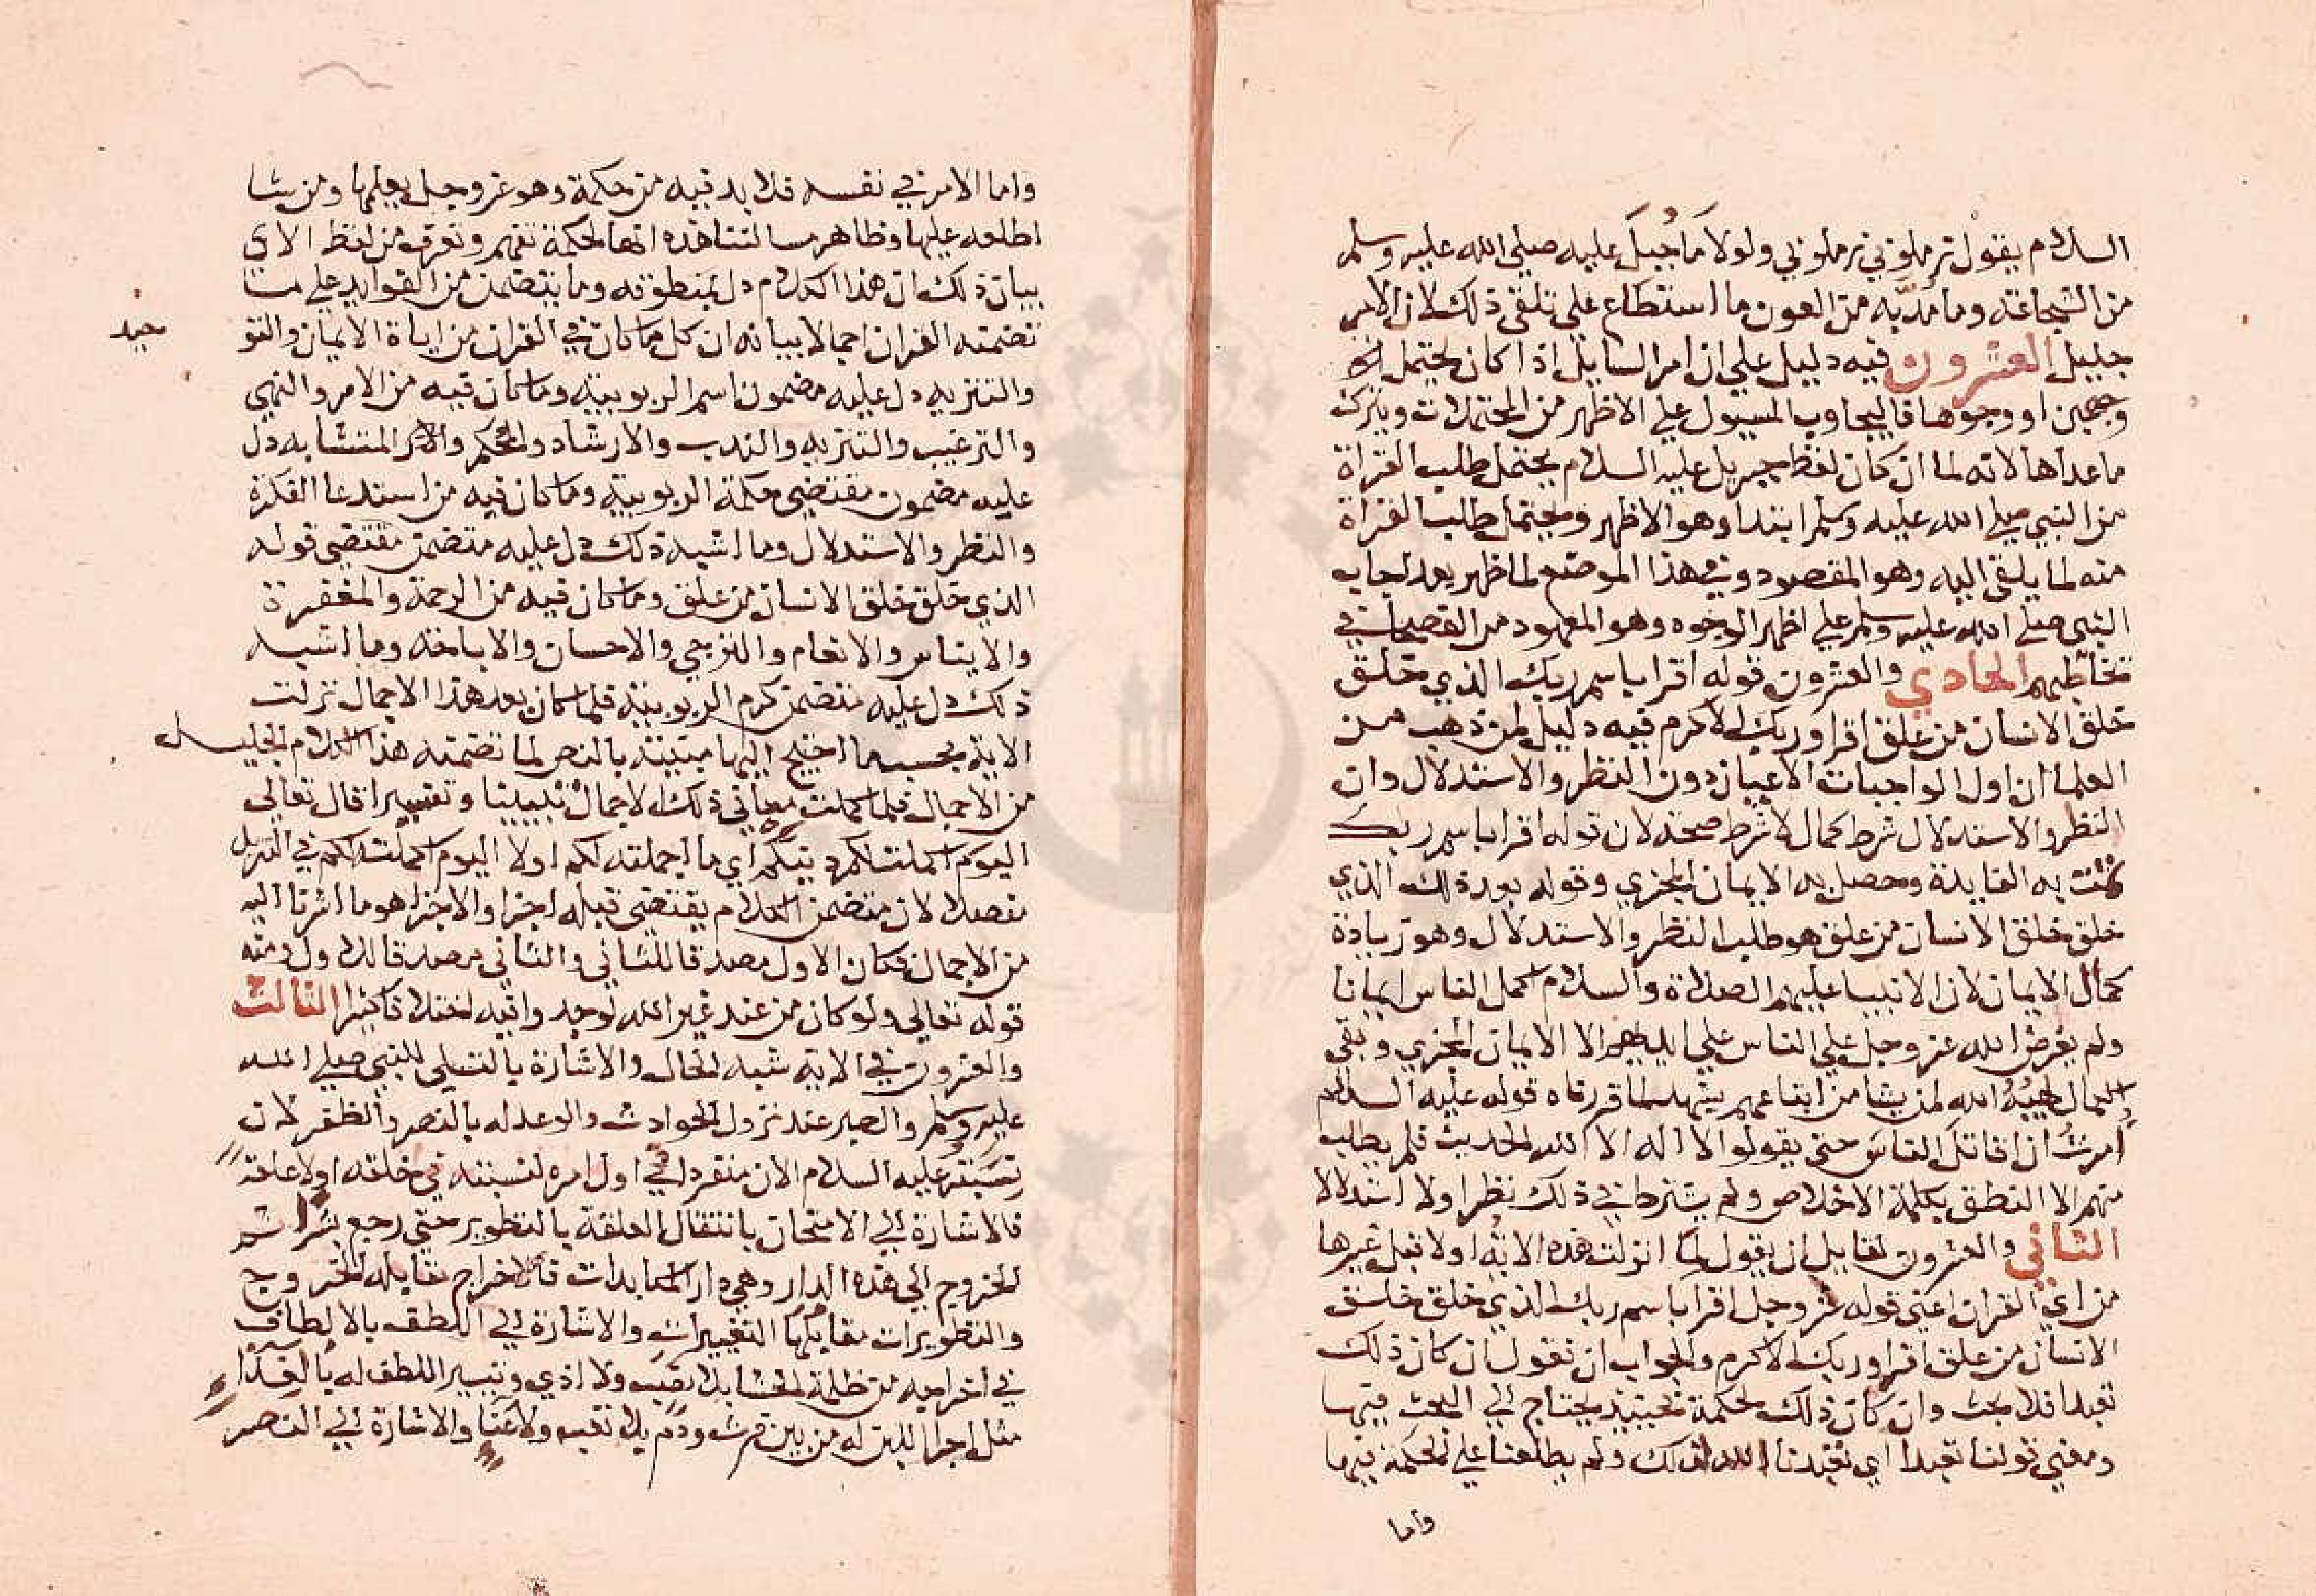 السلام يقول زملوني زملوني ولولا ما جبل عليه صلي الله عليه وسلم
من الشجاعة وما مد به من العون ما استطاع علي تلقي ذلك لان الامر
جليل العشرون فيه دليل علي ان امر السايل اذا كان يحتمل
وجهين او وجوها فاليجاوب المسيول علي الاظهر من المحتملات ويترك
ما عداها لانه لما ان كان لفظ جبريل عليه السلام يحتمل طلب القراة
من النبي صلي الله عليه وسلم ابتدا وهو الاظهر ويحتمل طلب القراة
منه لما يلقي اليه وهو المقصود وفي هذا الموضع لما ظهر بعد اجاب
النبي صلي الله عليه وسلم علي اظهر الوجوه وهو المعهود من الفصحا في
تخاطبهم الحادي والعشرون قوله اقرا باسم ربك الذي خلق
خلق الانسان من علق اقرا وربك الاكرم فيه دليل لمن ذهب من
العلما ان اول الواجبات الايمان دون النظر والاستدلال وان
النظر والاستدلال شرط كمال لا شرط صحة لان قوله اقرا باسم ربك
تمت به الفايدة وحصل به الايمان المجزي وقوله بعد ذلك الذي
خلق خلق الانسان من علق هو طلب النظر والاستدلال وهو زيادة
كمال الايمان لان الانبيا عليهم الصلاة والسلام اكمل الناس ايمانا
ولم يفرض الله عز وجل علي الناس علي ايديهم الا الايمان المجزي وبقي
الكمال يهبه الله لمن يشا من اتباعهم يشهد لما قررناه قوله عليه السلام
امرت ان اقاتل الناس حتي يقولوا لا اله الا الله الحديث فلم يطلب
منهم الا النطق بكلمة الاخلاص ولم يشترط في ذلك نظرا ولا استدلالا
الثاني والعشرون لقايل ان يقول لما انزلت هذه الاية اولا قبل غيرها
من اي القران اعني قوله عز وجل اقرا باسم ربك الذي خلق خلق
الانسان من علق اقرا وربك الاكرم والجواب ان نقول ان كان ذلك
تعبدا فلا بحث وان كان ذلك لحكمة فحينيذ يحتاج الي البحث فيها
ومعني قولنا تعبدا اي تعبدنا الله بذلك ولم يطلعنا علي الحكمة فيها
واما
واما الامر في نفسه فلا بد فيه من حكمة وهو عز وجل يعلمها ومن شا
اطلعه عليها وظاهر مسالتنا هذه انها لحكمة تفهم وتعرف من لفظ الاي
بيان ذلك ان هذا الكلام دل بمنطوقه وما يتضمن من الفوايد علي ما
تضمنه القران اجمالا بيانه ان كل ما كان في القران من اياة الايمان والتو
حيد
والتنزيه دل عليه مضمون اسم الربوبية وما كان فيه من الامر والنهي
والترغيب والتنزيه والندب والارشاد والمحكم والمتشابه دل
عليه مضمون مقتضي حكمة الربوبية وما كان فيه من استدعا الفكرة
والنظر والاستدلال وما اشبه ذلك دل عليه متضمن مقتضي قوله
الذي خلق خلق الانسان من علق وما كان فيه من الرحمة والمغفرة
والايناس والانعام والترجي والاحسان والاباحة وما اشبه
ذلك دل عليه متضمن كرم الربوبية فلما كان بعد هذا الاجمال نزلت
الاية بحسب ما احتيج اليها مبينة بالنص لما تضمنه هذا الكلام الجليل
من الاجمال فلما كملت معاني ذلك الاجمال تبيينا وتفسيرا قال تعالي
اليوم اكملت لكم دينكم اي ما اجملته لكم اولا اليوم اكملته لكم في التنزيل
مفصلا لان متضمن الكلام يقتضي قبله اجزا والاجزا هو ما اشرنا اليه
من الاجمال فكان الاول مصدقا للثاني والثاني مصدقا للاول ومنه
قوله تعالي ولو كان من عند غير الله لوجدوا فيه اختلافا كثيرا الثالث
والعشرون في الاية شبه الحال والاشارة بالتسلي للنبي صلي الله
عليه وسلم والصبر عند نزول الحوادث والوعد له بالنصر والظفر لان
عليه السلام الان منفردا في اول امره لنسبته في خلقته اولا علقة
فالاشارة الي الامتحان بانتقال العلقة بالتطوير حتي رجع بشرا ثم
الخروج الي هذه الدار وهي دار المكابدات فالاخراج مقابله الخروج
والتطويرات مقابلها التغييرات والاشارة الي اللطف بالالطاف
في اخراجه من ظلمة الحشا بلا نصب ولا اذي وتيسير اللطف له بالغذا
مثل اجرا اللبن له من بين فرث ودم بلا تعب ولا عنا والاشارة الي النصر